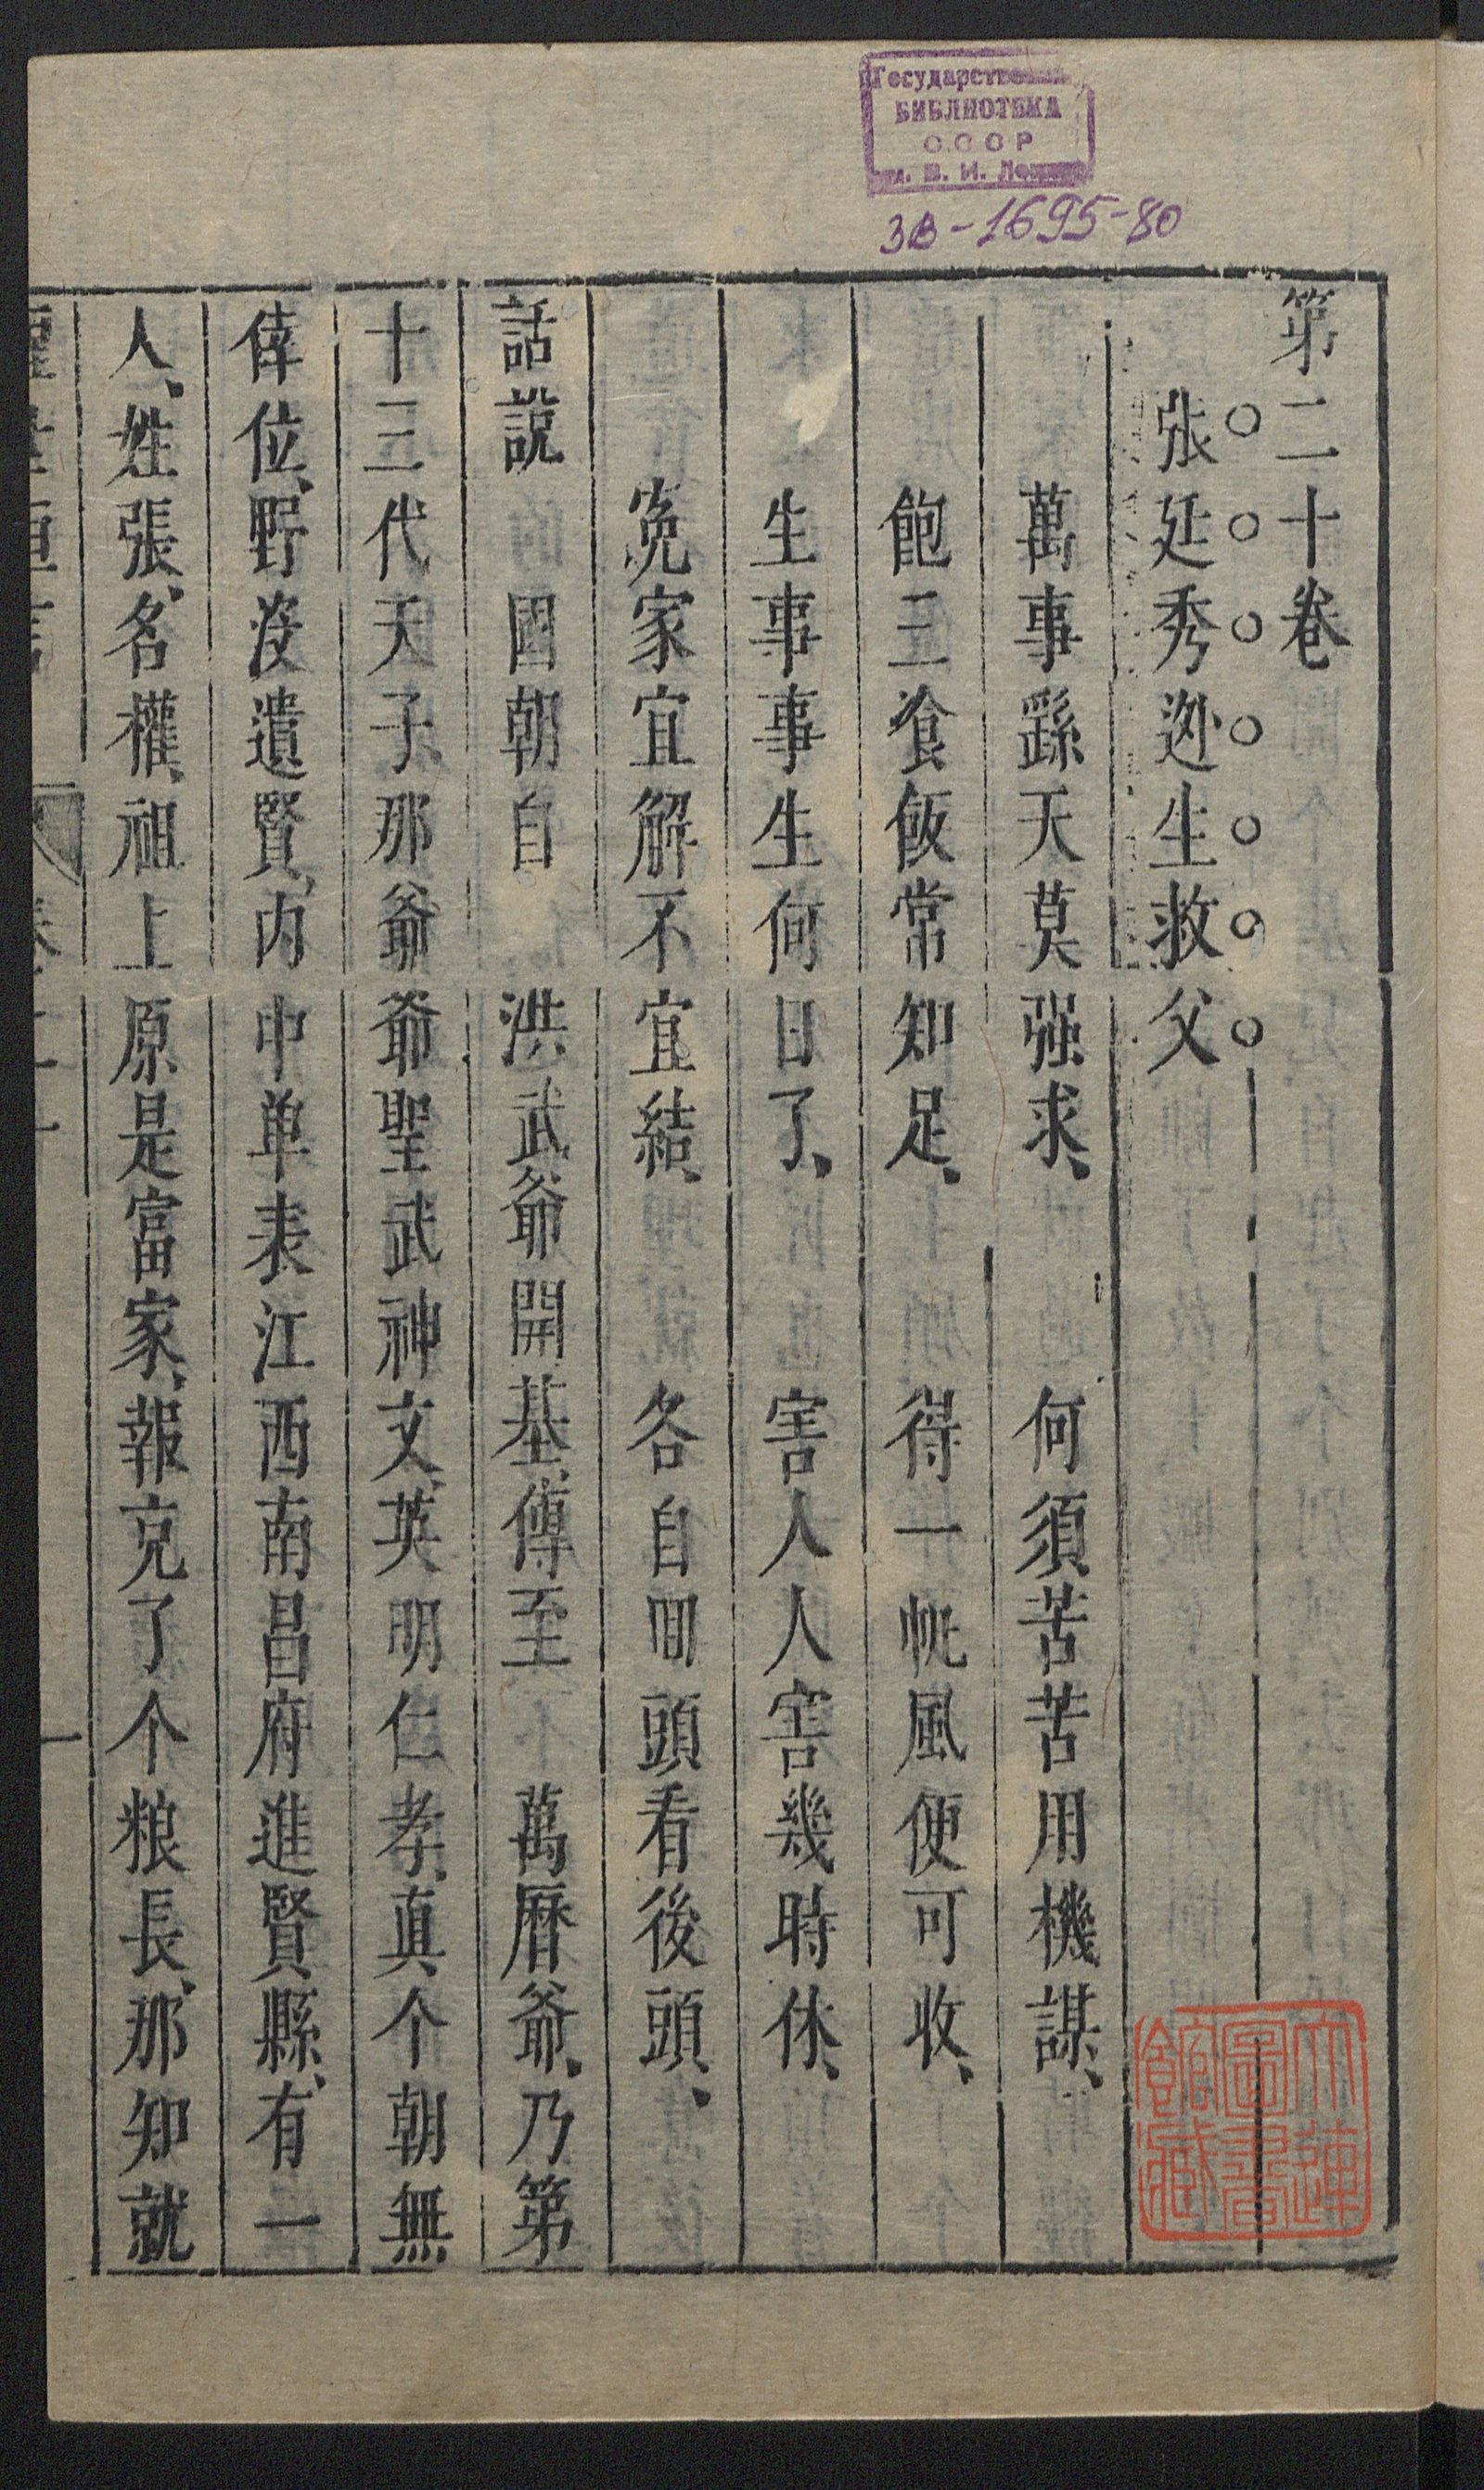 Государстве
БИБЛИОТЕКА
СССР
м. В. И. Лен
3В-1695-80
第二十卷
張廷秀逃生救父
萬事繇天莫强求、何須苦苦用機謀、
飽三飡飯常知足、得一帆風便可收、
生事事生何日了、害人人害幾時休、
寃家宜解不宜結、各自囬頭看後頭、
話說國朝自洪武爺開基、傳至萬曆爺、乃第
十三代天子、那爺爺聖武神文、英明仁孝、真个朝無
倖位、野没遺賢、内中单表江西南昌府進賢縣、有一
人、姓張、名權、祖上原是富家、報充了个粮長、那知就
醒世恒言
卷二十
一
大連圖書館藏